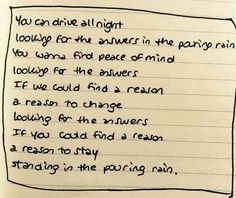 You can drive all night
looking for the answers in the pouring rain
You wanna find peace of mind
looking for the answers
If we could find a reason
a reason to change
looking for the answers
If you could find a reason
a reason to stay
standing in the pouring rain.